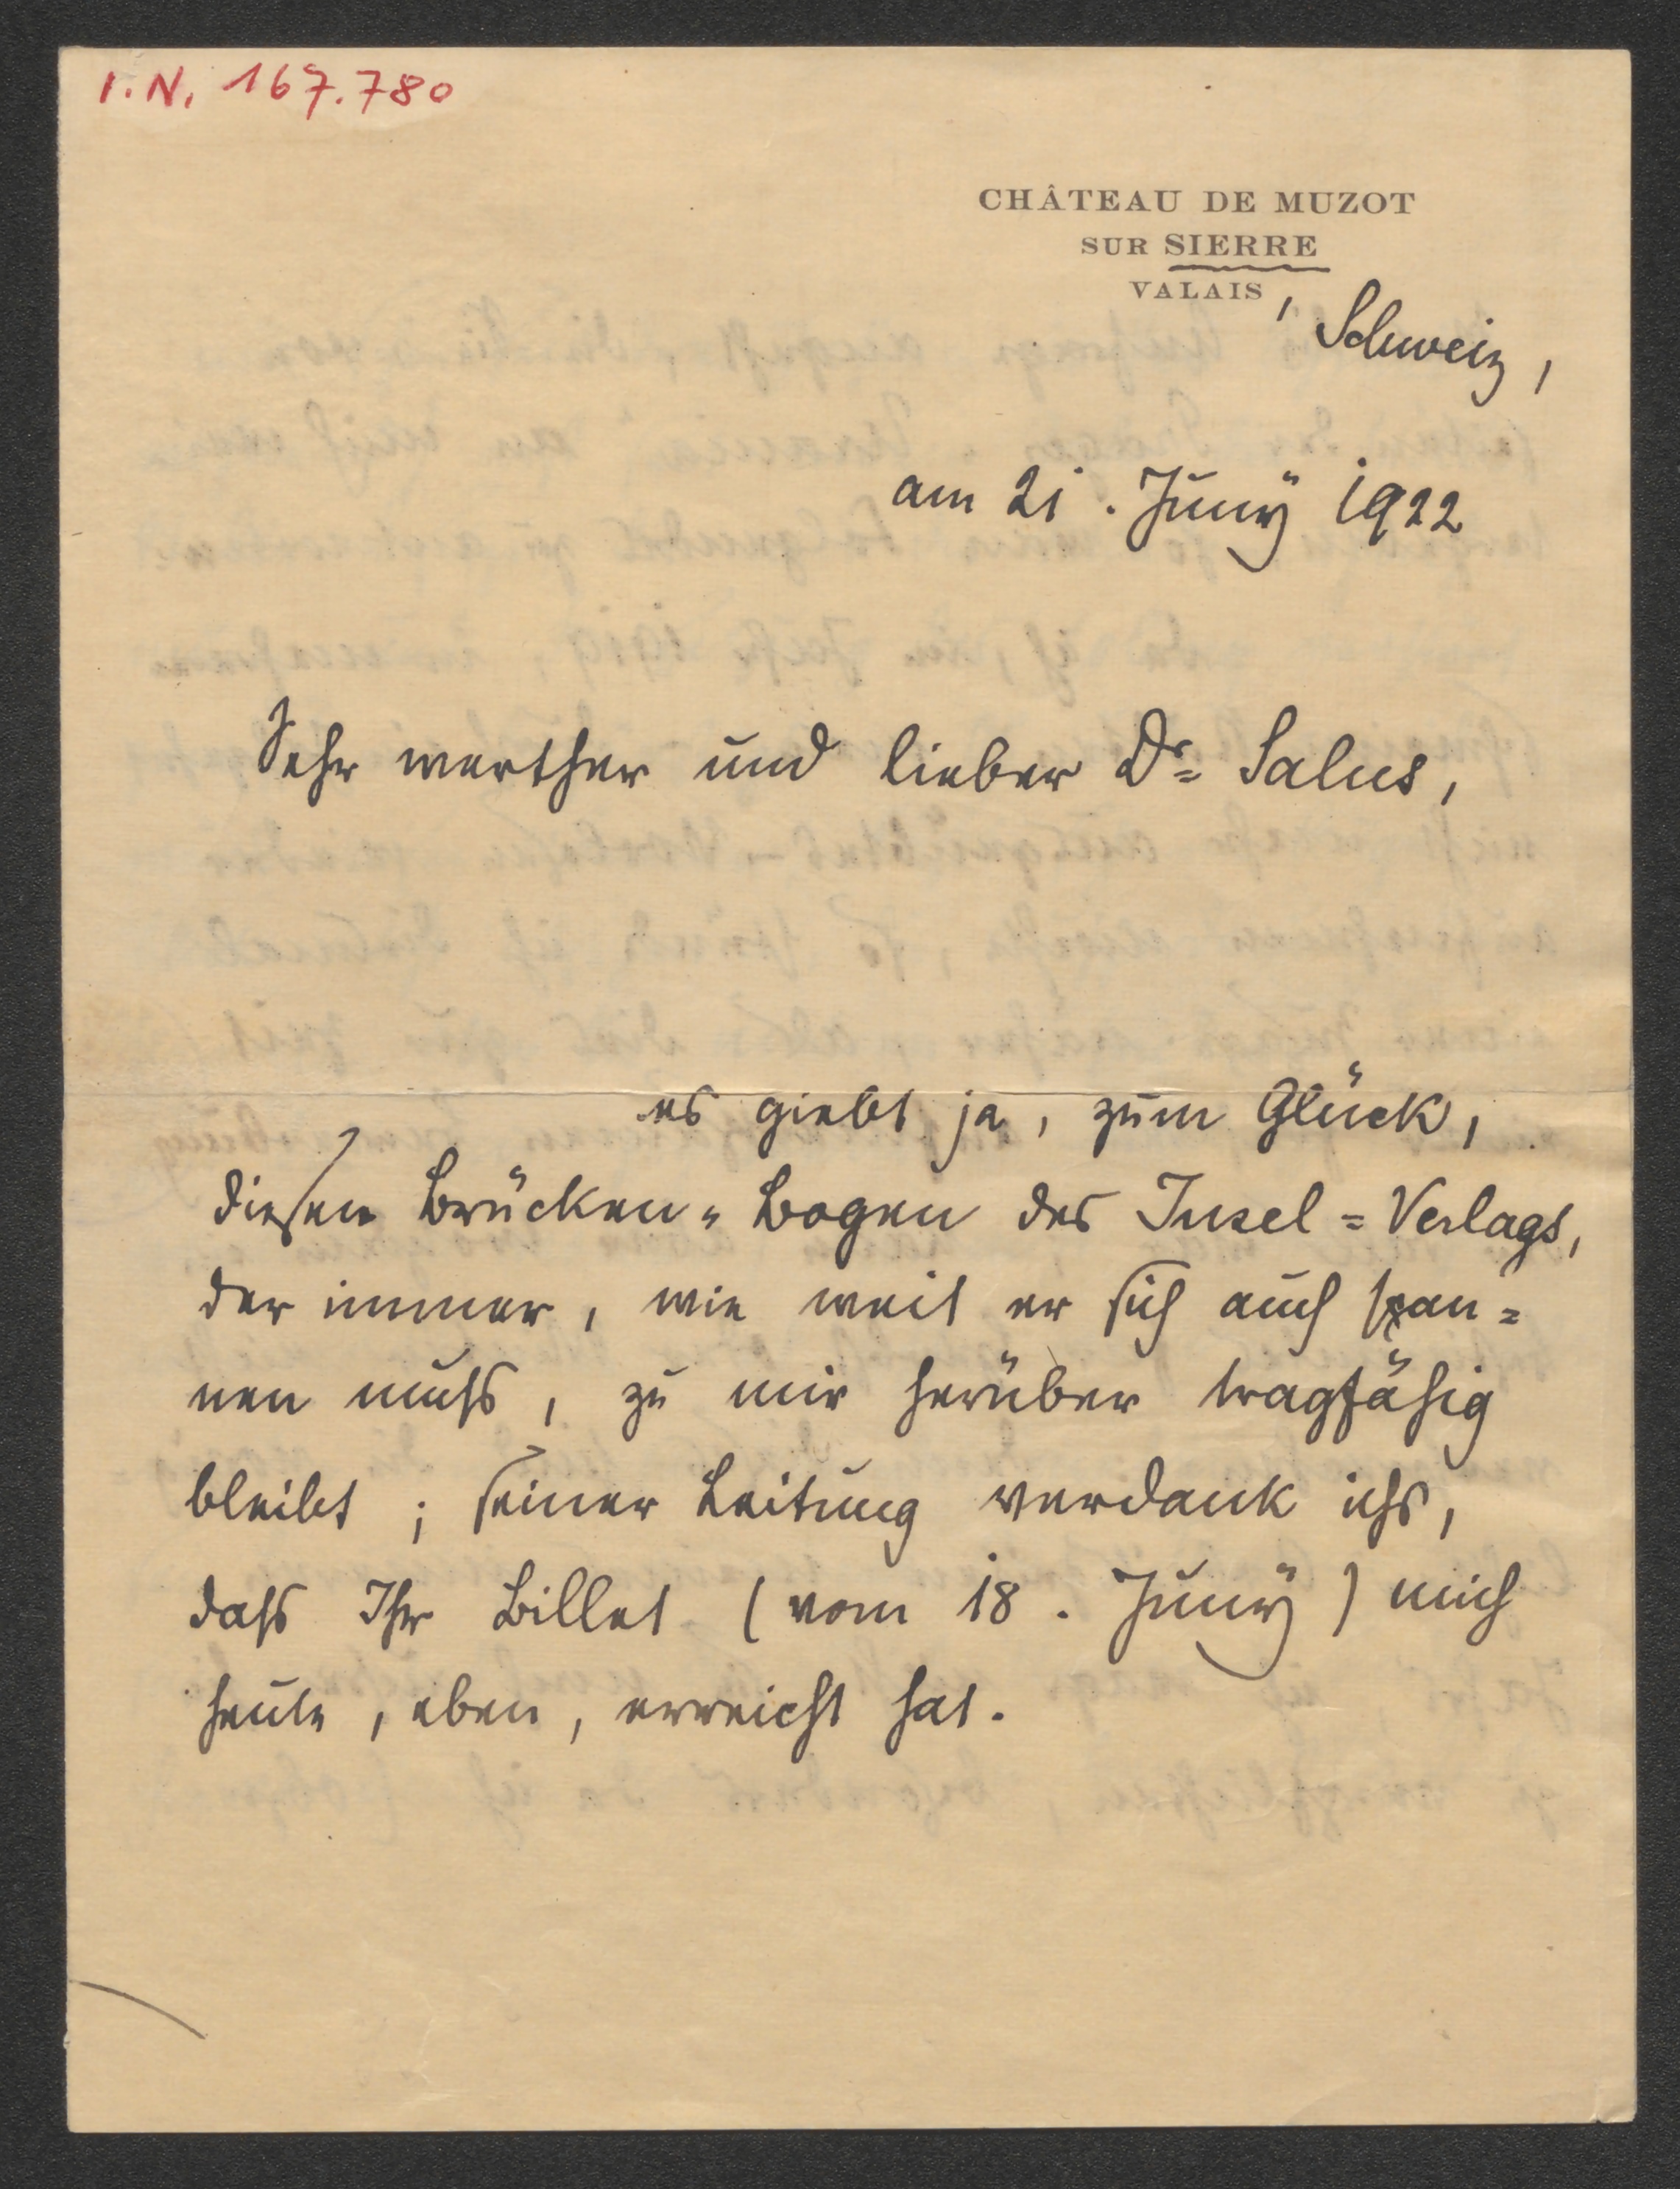 I.N. 167.780
CHÂTEAU DE MUZOT
SUR SIERRE
VALAIS, Schweiz,
am 21. Juny 1922
Sehr werther und lieber Dr= Salus,
es giebt ja, zum Glück,
diesen Brücken=Bogen des Insel=Verlags,
der immer, wie weit er sich auch span=
nen muss, zu mir herüber tragfähig
bleibt; seiner Leitung verdank ichs,
dass Ihr Billet (vom 18. Juny) mich
heute, eben, erreicht hat.